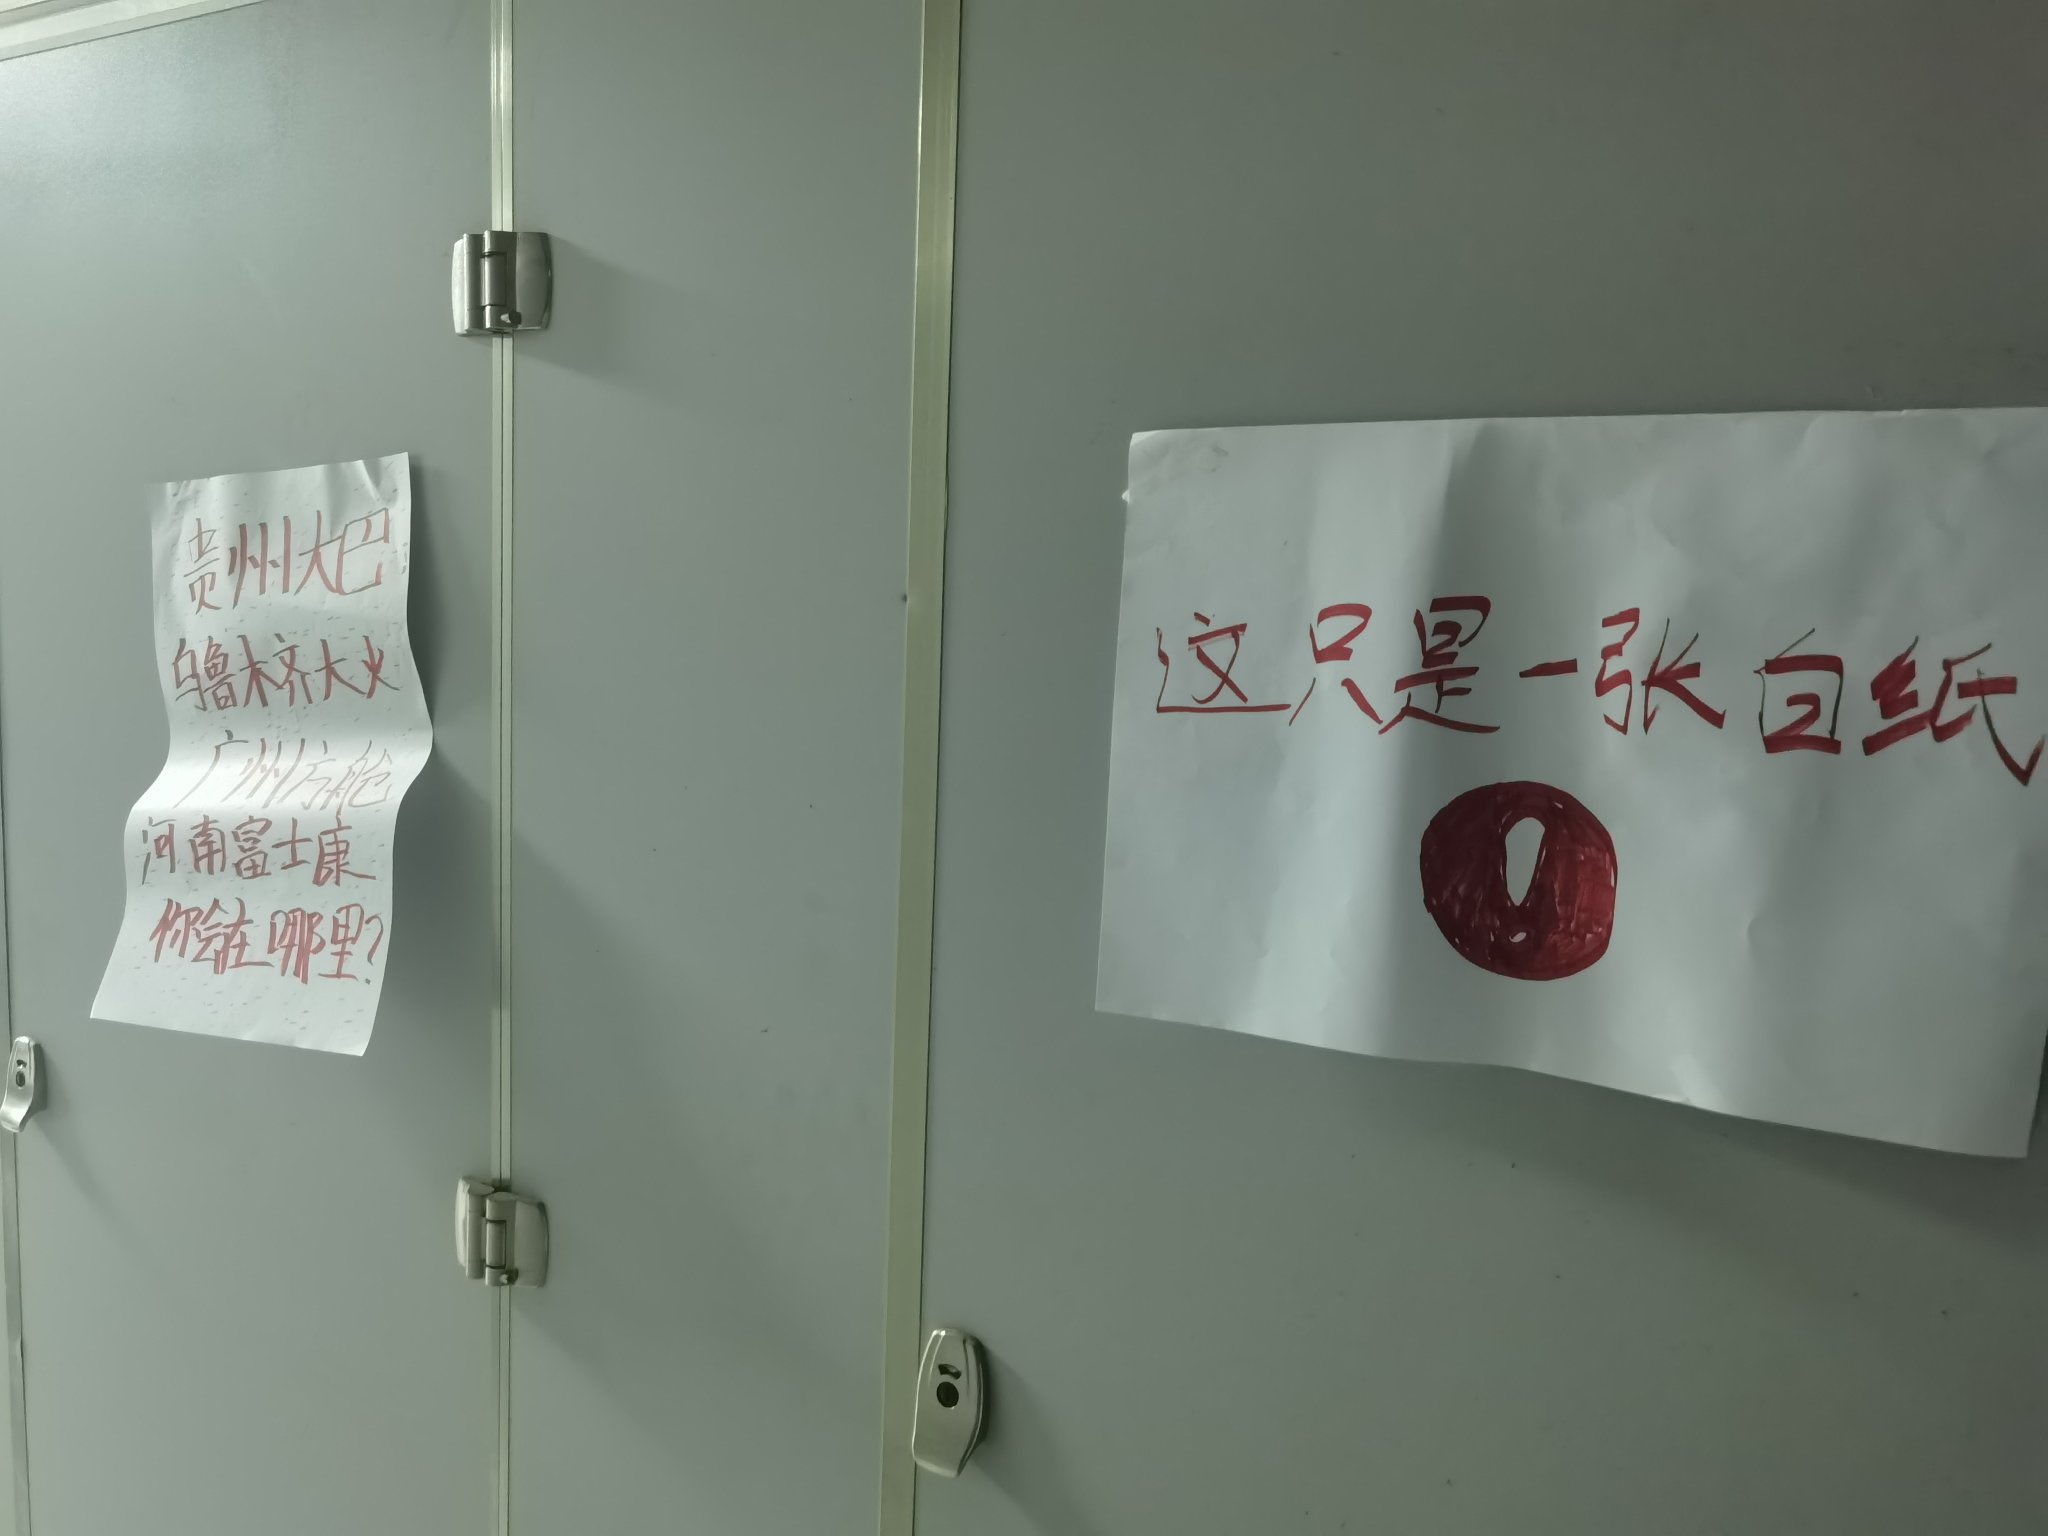 贵州大巴
乌鲁木齐大火
广州方舱
河南富士康
你会在哪里?
这只是一张白纸